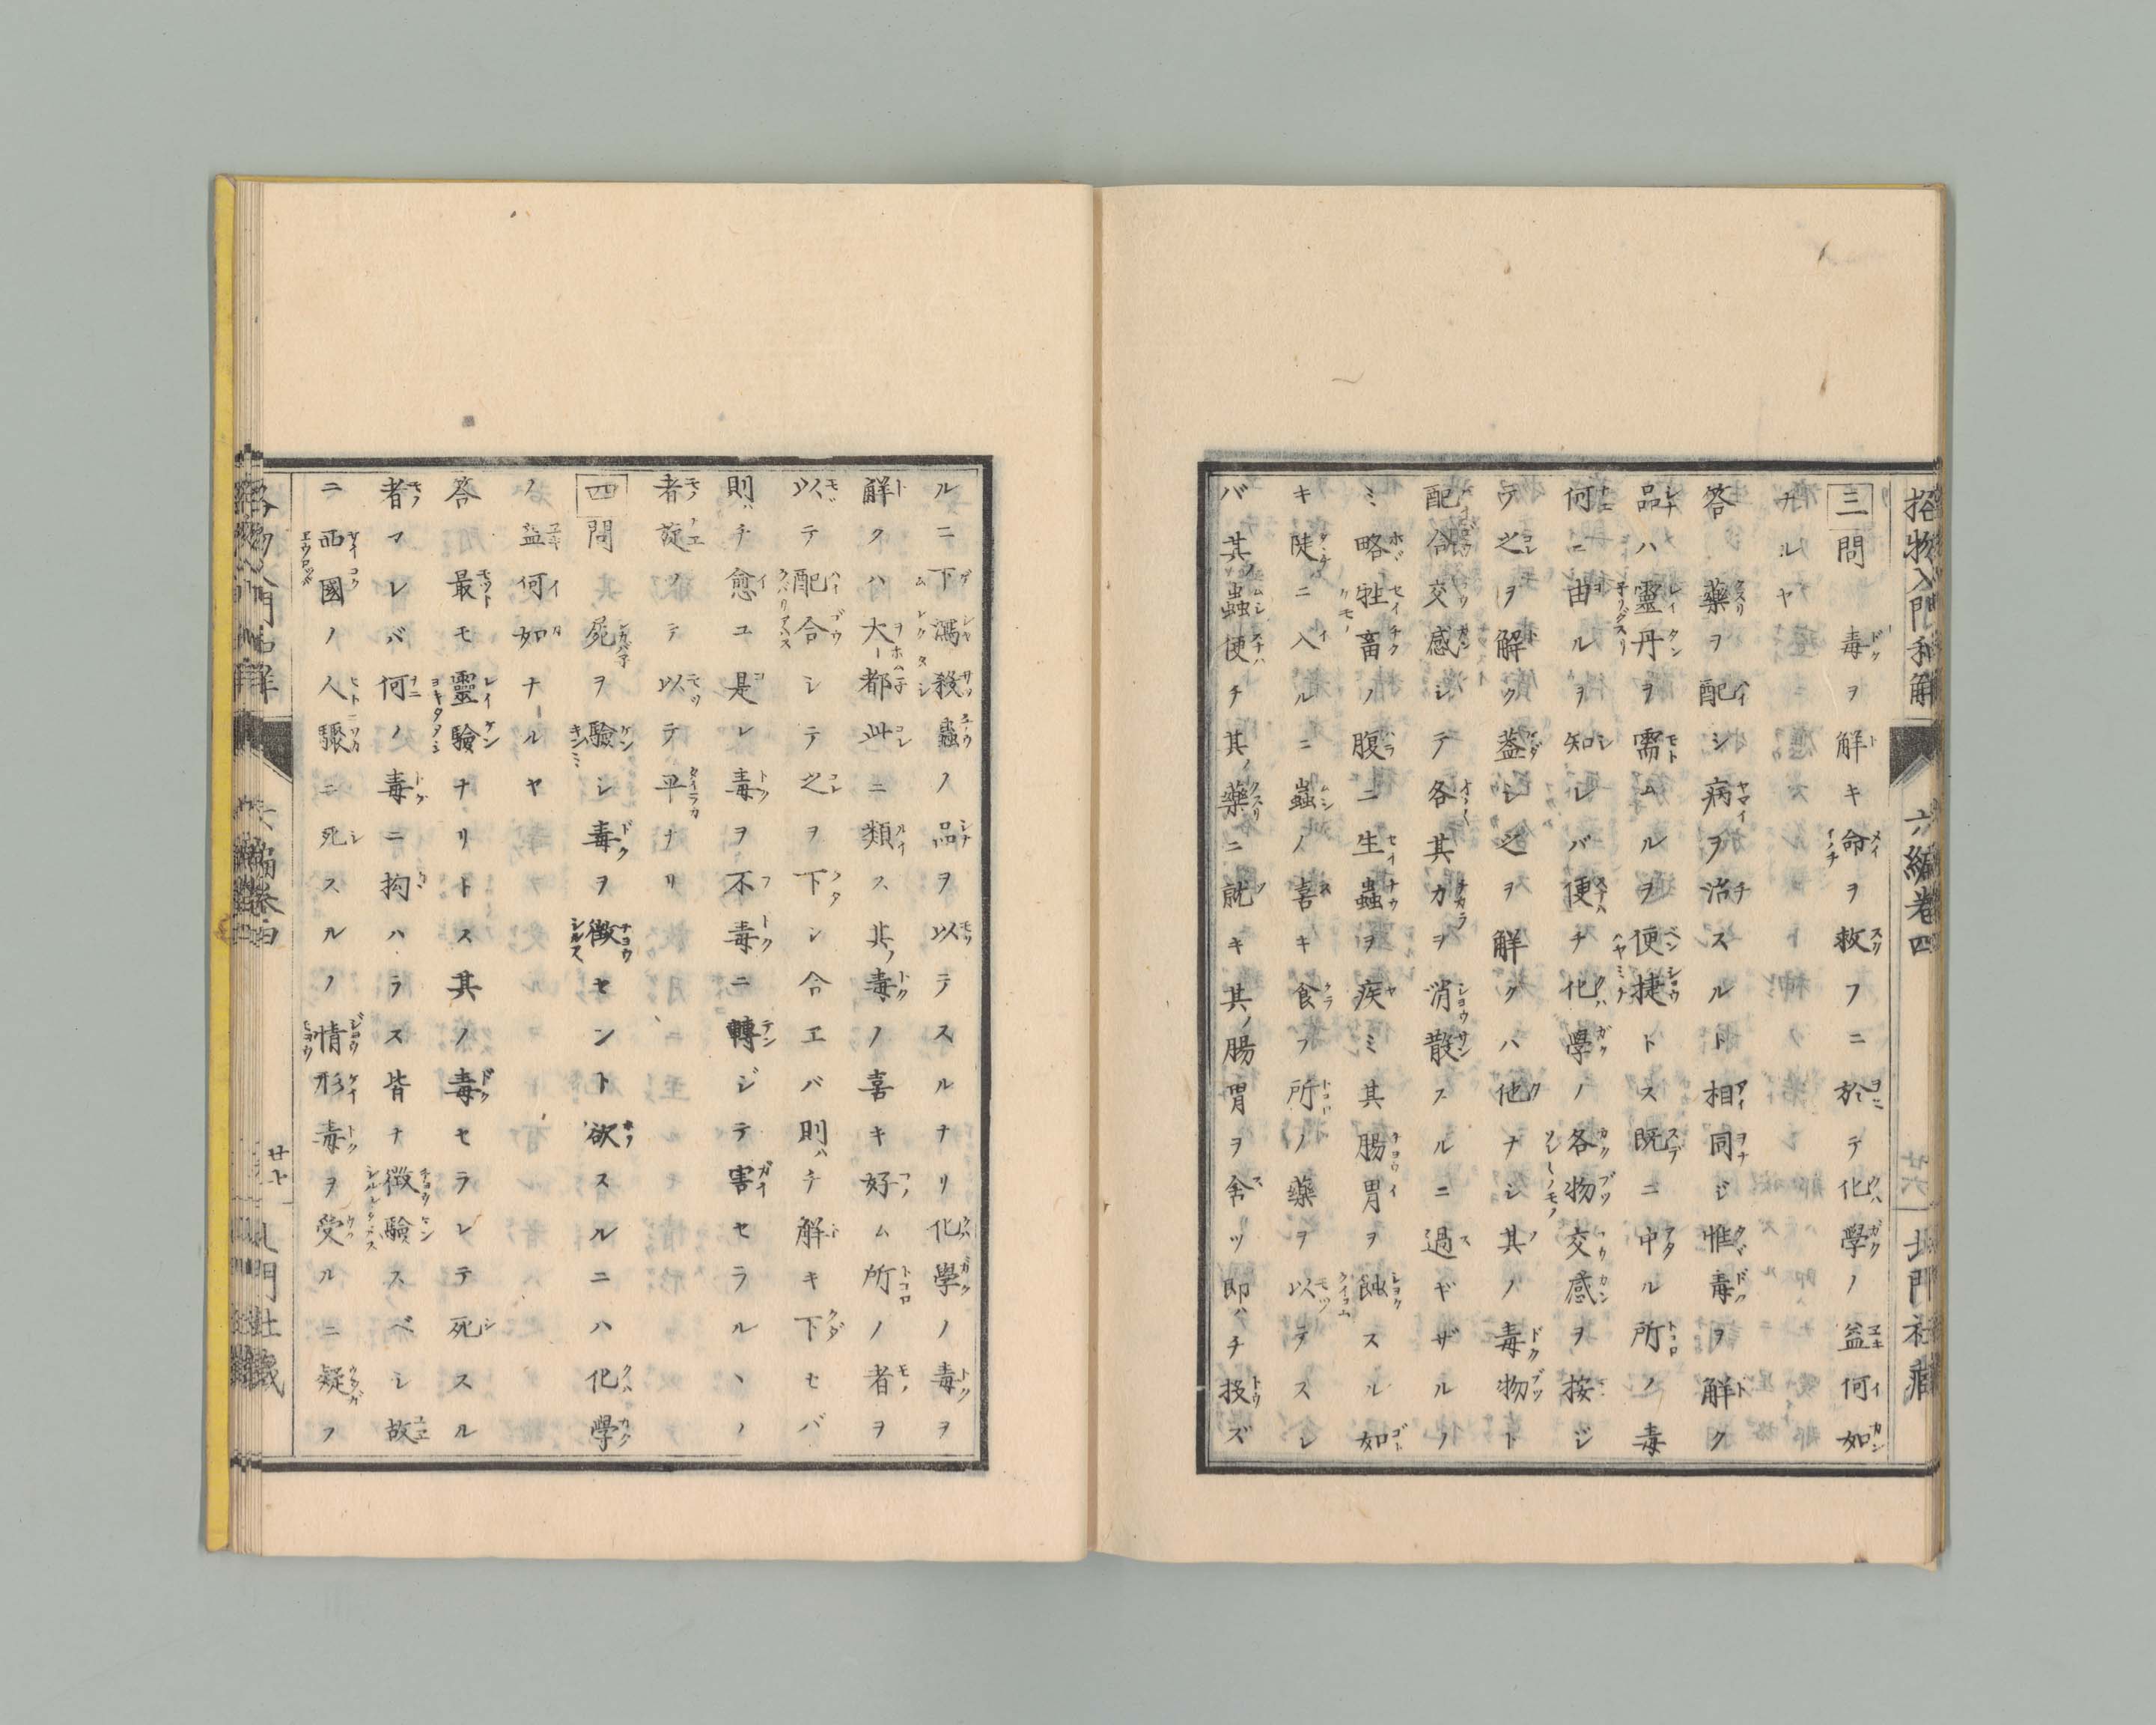 格物入門和解 六編卷四 廿六 北門社藏
三 問 毒ヲ解キ命ヲ救フニ於テ化學ノ益何如
ナルヤ
答 藥ヲ配シ病ヲ治スルト相同ジ惟毒ヲ解ク
品ハ靈丹ヲ需ムルヲ便捷トス既ニ中ル所ノ毒
何ニ由ルヲ知レバ便チ化學ノ各物交感ヲ按ジ
テ之ヲ解ク蓋シ之ヲ解クハ他ナシ其ノ毒物ト
配合交感シテ各其力ヲ消散スルニ過ギザルノ
ミ略牲畜ノ腹ニ生蟲ヲ疾ミ其腸胃ヲ蝕スル如
キ陡ニ入ルニ蟲ノ喜キ食フ所ノ藥ヲ以テスレ
バ其ノ蟲便チ其ノ藥ニ就キ其ノ腸胃ヲ舍ツ即ハチ投ズ
ルニ下瀉殺蟲ノ品ヲ以テスルナリ化學ノ毒ヲ
解クハ大都此ニ類ス其ノ毒ノ喜キ好ム所ノ者ヲ
以テ配合シテ之ヲ下シ合エバ則ハチ解キ下セバ
則ハチ愈ユ是レ毒ヲ不毒ニ轉ジテ害セラルヽノ
者旋ノテ以テ平ナリ
四 問 其屍ヲ驗シ毒ヲ徴セント欲スルニハ化學
ノ益何如ナールヤ
答 最モ靈驗ナリトス其ノ毒セラレテ死スル
者マレバ何ノ毒ニ拘ハラス皆ナ徴驗スベシ故
ニ西國ノ人驟ニ死スルノ情形毒ヲ受ルニ疑フ
格物入門和解 六編卷四 廿七 北門社藏